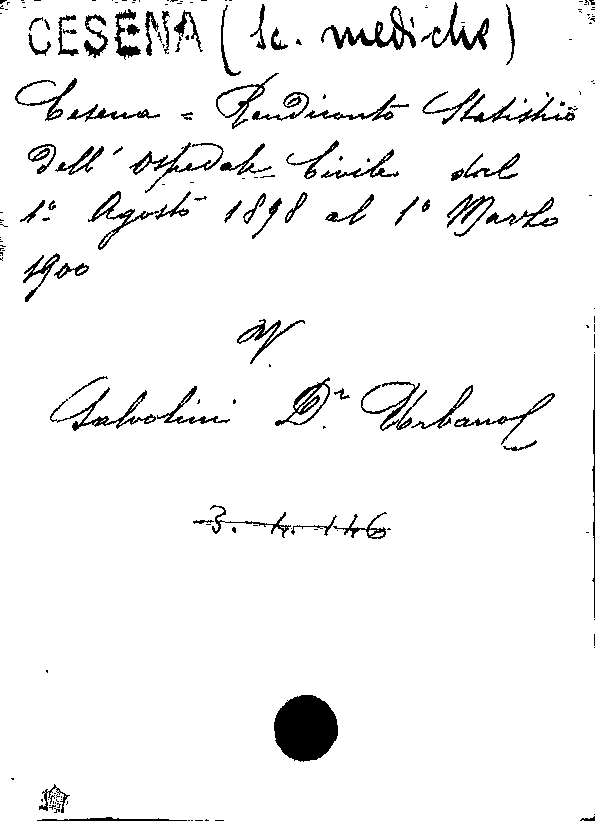 CESENA (Sc. mediche)
Cesena = Rendiconto Statistico
dell' Ospedale Civile dal
1º Agosto 1898 al 1º Marzo
1900
V.
Salvolini Dr. Urbano
3. 4. 146